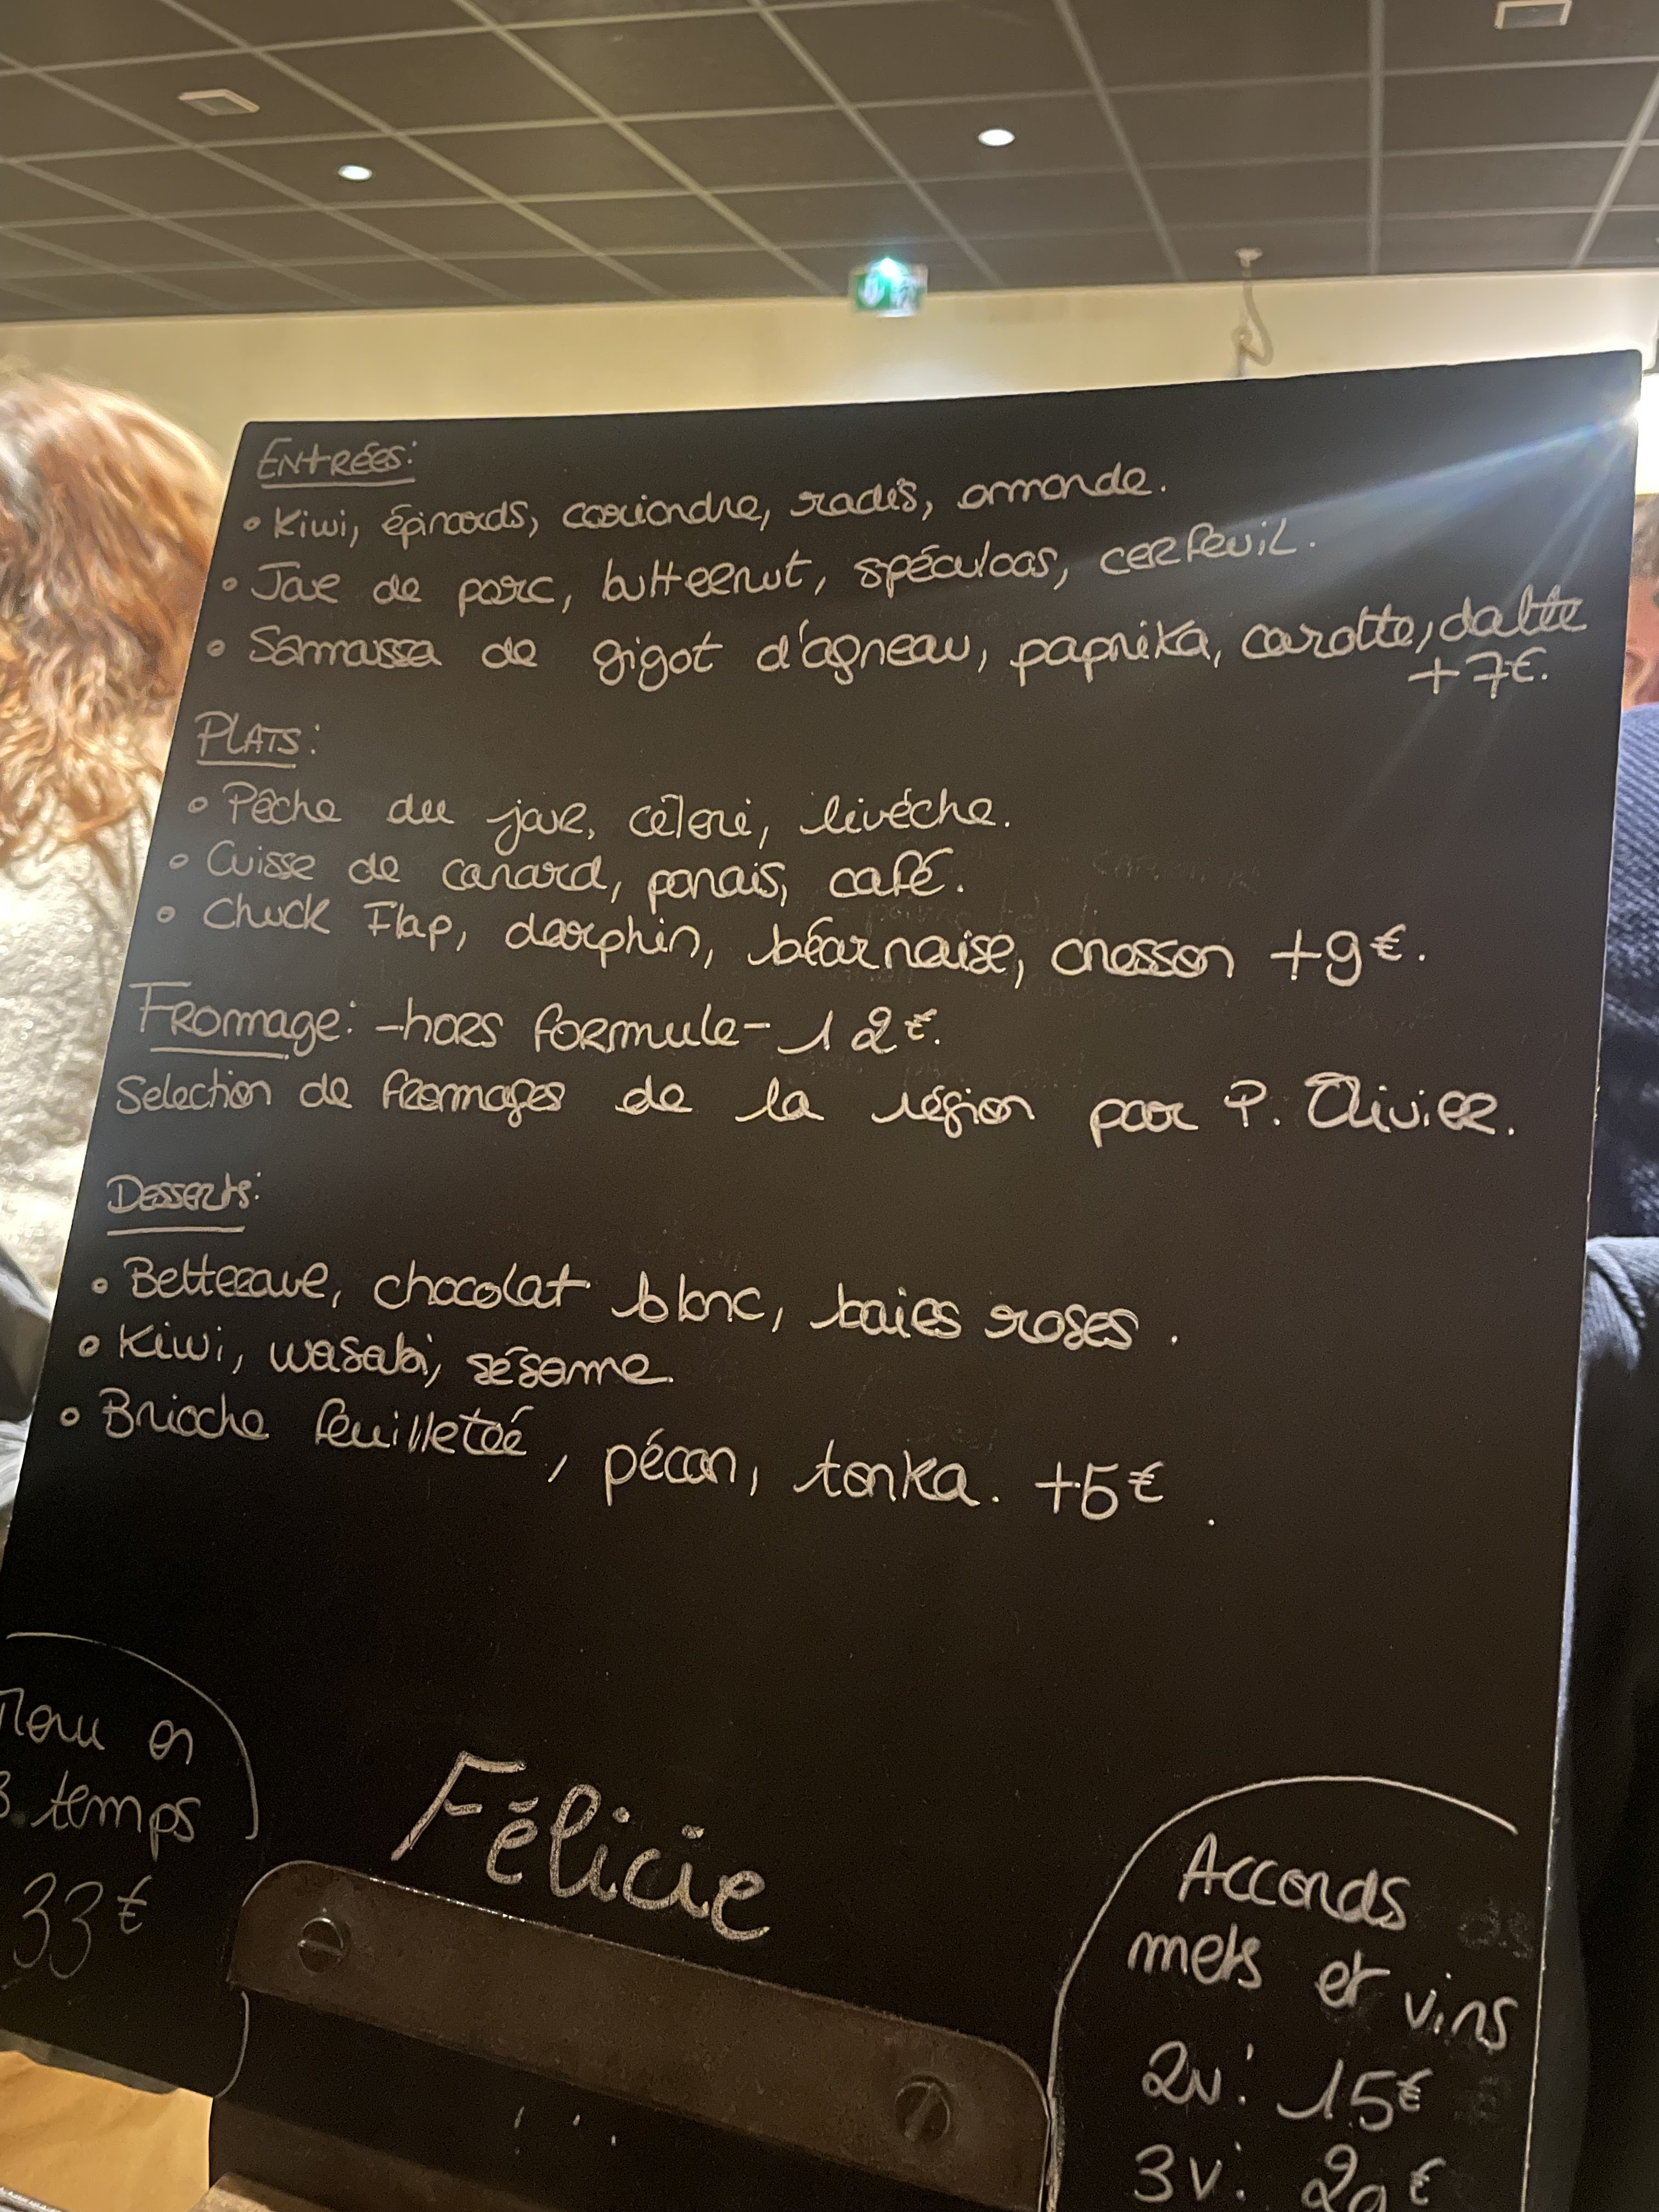 Entrées:
• Kiwi, épinards, coriandre, radis, amande.
• Joue de porc, butternut, spéculoos, cerfeuil.
• Samassa de gigot d'agneau, paprika, carotte, datte
+7€.
Plats:
• Pêche du jour, céleri, livèche.
• Cuisse de canard, panais, café.
• Chuck Flap, darphin, béarnaise, cresson +9€.
Fromage: -hors formule- 12€.
Selection de fromages de la région par P. Olivier.
Desserts:
• Betterave, chocolat blanc, baies roses.
• Kiwi, wasabi, sésame.
• Brioche feuilleteé, pécan, tonka. +5€.
Menu en
3 temps
33€
Félicie
Accords
mets et vins
2v: 15€
3v: